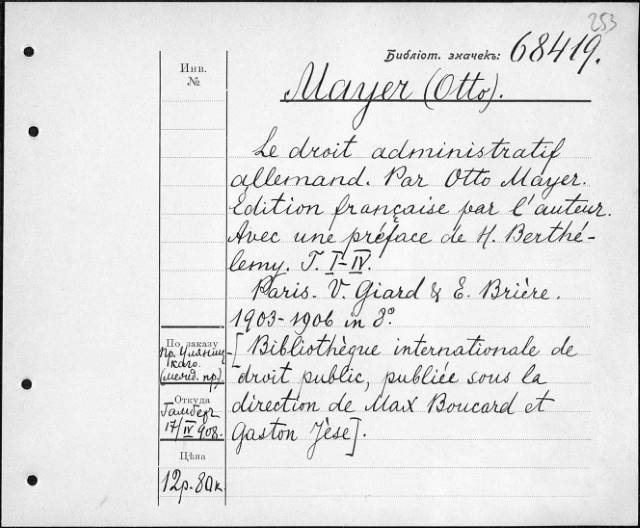 253
Библіот. значекъ: 68419.
Инв.
№
Mayer (Otto).
Le droit administratif
allemand. Par Otto Mayer.
Édition française par l'auteur.
Avec une préface de H. Berthé-
lemy. T. I-IV.
Paris. V. Giard & E. Brière.
1903-1906 in 8º.
[Bibliothèque internationale de
droit public, publiée sous la
direction de Max Boucard et
Gaston Jèse].
По заказу
пр. Уляниц-
каго.
(межд. пр.)
Откуда
Гамберъ
17/IV 908.
Цѣна
12р. 80к.